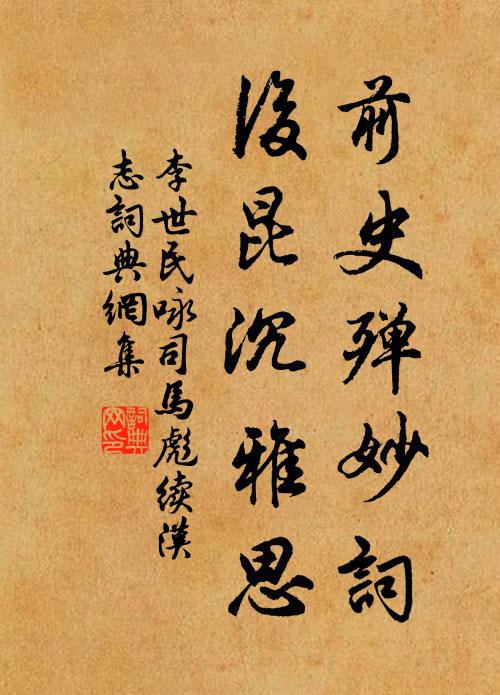 前史殫妙詞
後昆沉雅思
李世民咏司馬彪續漢
志詞典網集
詞典
网印